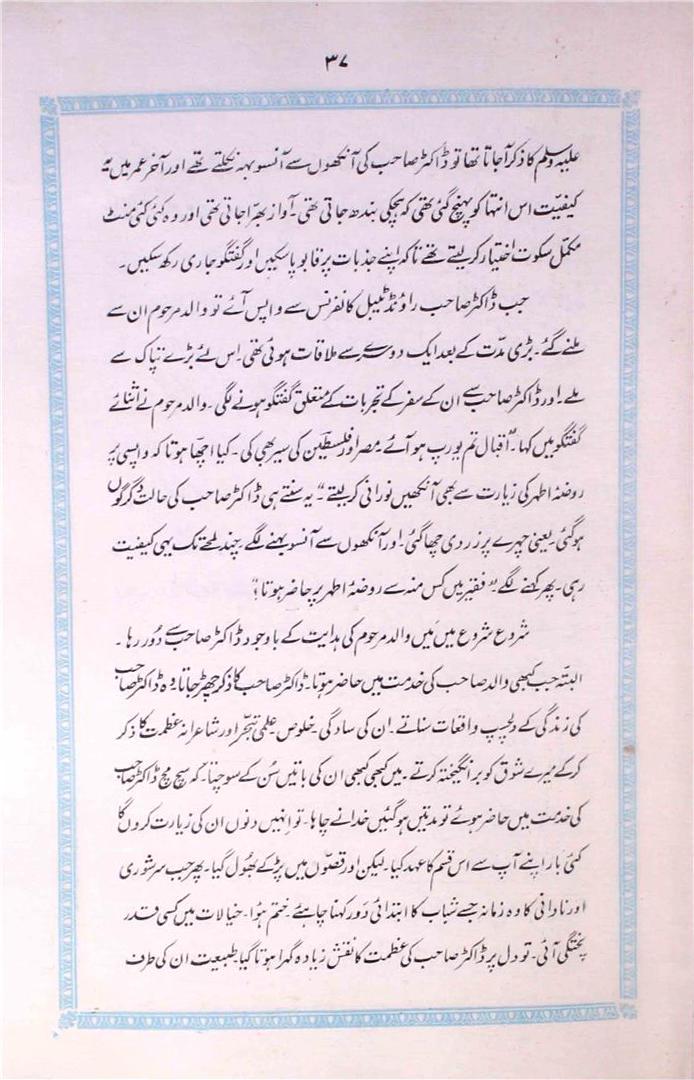 ۳۷
علیہ وسلم کا ذکر آجاتا تھا تو ڈاکٹر صاحب کی آنکھوں سے آنسو بہہ نکلتے تھے اور آخر عمر میں یہ
کیفیّت اس انتہا کو پہنچ گئی تھی کہ ہچکی بندھ جاتی تھی۔ آواز بھرّا جاتی تھی اور وہ کئی کئی منٹ
مکمّل سکوت اختیار کر لیتے تھے تاکہ اپنے جذبات پر قابو پا سکیں اور گفتگو جاری رکھ سکیں۔
جب ڈاکٹر صاحب راؤنڈ ٹیبل کانفرنس سے واپس آئے تو والد مرحوم ان سے
ملنے گئے۔ بڑی مدّت کے بعد ایک دوسرے سے ملاقات ہوئی تھی۔ اس لئے بڑے تپاک سے
ملے۔ اور ڈاکٹر صاحب سے ان کے سفر کے تجربات کے متعلق گفتگو ہونے لگی۔ والد مرحوم نے اثنائے
گفتگو میں کہا۔ "اقبال تم یورپ ہو آئے۔ مصر اور فلسطین کی سیر بھی کی۔ کیا اچھّا ہوتا کہ واپسی پر
روضۂ اطہر کی زیارت سے بھی آنکھیں نورانی کر لیتے"۔ یہ سنتے ہی ڈاکٹر صاحب کی حالت دگرگوں
ہو گئی۔ یعنی چہرے پر زردی چھا گئی۔ اور آنکھوں سے آنسو بہنے لگے۔ چند لمحے تک یہی کیفیت
رہی۔ پھر کہنے لگے۔ "فقیر! میں کس منہ سے روضۂ اطہر پر حاضر ہوتا؟"
شروع شروع میں مَیں والد مرحوم کی ہدایت کے باوجود ڈاکٹر صاحب سے دُور رہا۔
البتّہ جب کبھی والد صاحب کی خدمت میں حاضر ہوتا۔ ڈاکٹر صاحب کا ذکر چھڑ جاتا وہ ڈاکٹر صاحب
کی زندگی کے دلچسپ واقعات سناتے۔ ان کی سادگی۔ خلوص علمی تبحّر اور شاعرانہ عظمت کا ذکر
کر کے میرے شوق کو برانگیختہ کرتے۔ میں کبھی کبھی ان کی باتیں سُن کے سوچتا۔ کہ سچ مچ ڈاکٹر صاحب
کی خدمت میں حاضر ہوئے تو مدتیں ہو گئیں خدا نے چاہا۔ تو انہیں دنوں ان کی زیارت کروں گا
کئی بار اپنے آپ سے اس قسم کا عہد کیا۔ لیکن اور قصّوں میں پڑ کے بھُول گیا۔ پھر جب سرشوری
اور نادانی کا وہ زمانہ جسے شباب کا ابتدائی دَور کہنا چاہئے۔ ختم ہوُا۔ خیالات میں کسی قدر
پختگی آئی۔ تو دل پر ڈاکٹر صاحب کی عظمت کا نقش زیادہ گہرا ہوتا گیا۔ طبیعت ان کی طرف